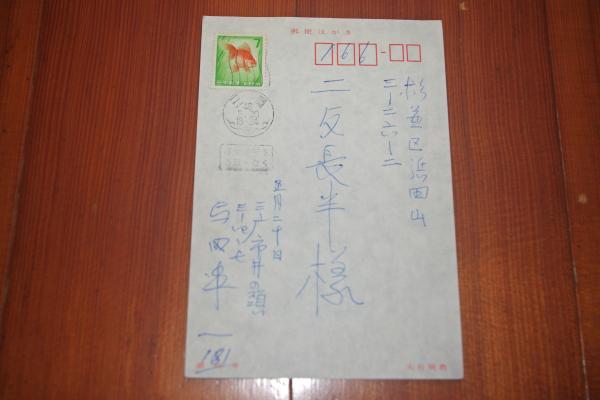 郵便はがき
166
杉並区浜田山
三-二六-二
二反長半様
五月二十日
三鷹市井の頭
三-四-七
与田凖一
181
7